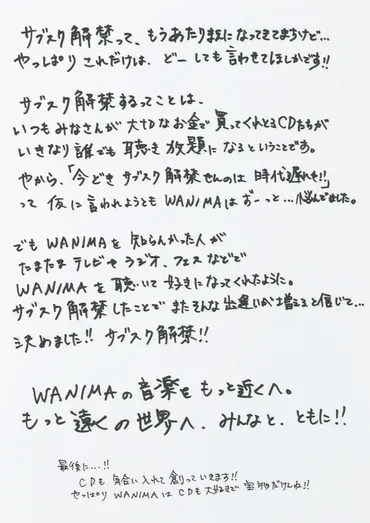 サブスク解禁って、もうあたりまえになってきてますけど…
やっぱり これだけは、どーしても言わせてほしかです!!
サブスク解禁するってことは、
いつもみなさんが 大切なお金で 買ってくれとるCDたちが
いきなり誰でも 聴き放題に なるということです。
やから、「今どき サブスク解禁せんのは 時代遅れぞ!!」
って 仮に言われようとも WANIMAは ずーっと…悩んでました。
でも WANIMAを 知らんかった人が
たまたま テレビや ラジオ、フェスなどで
WANIMAを 聴いて 好きになってくれたように。
サブスク解禁したことで またそんな 出逢いが増えると信じて…
決めました!! サブスク解禁!!
WANIMAの音楽を もっと近くへ。
もっと 遠くの世界へ、みんなと、ともに!!
最後に…!!
CDも 気合い入れて 創っていきます!!
やっぱり WANIMAは CDも 大好きで 宝物だけんね!!